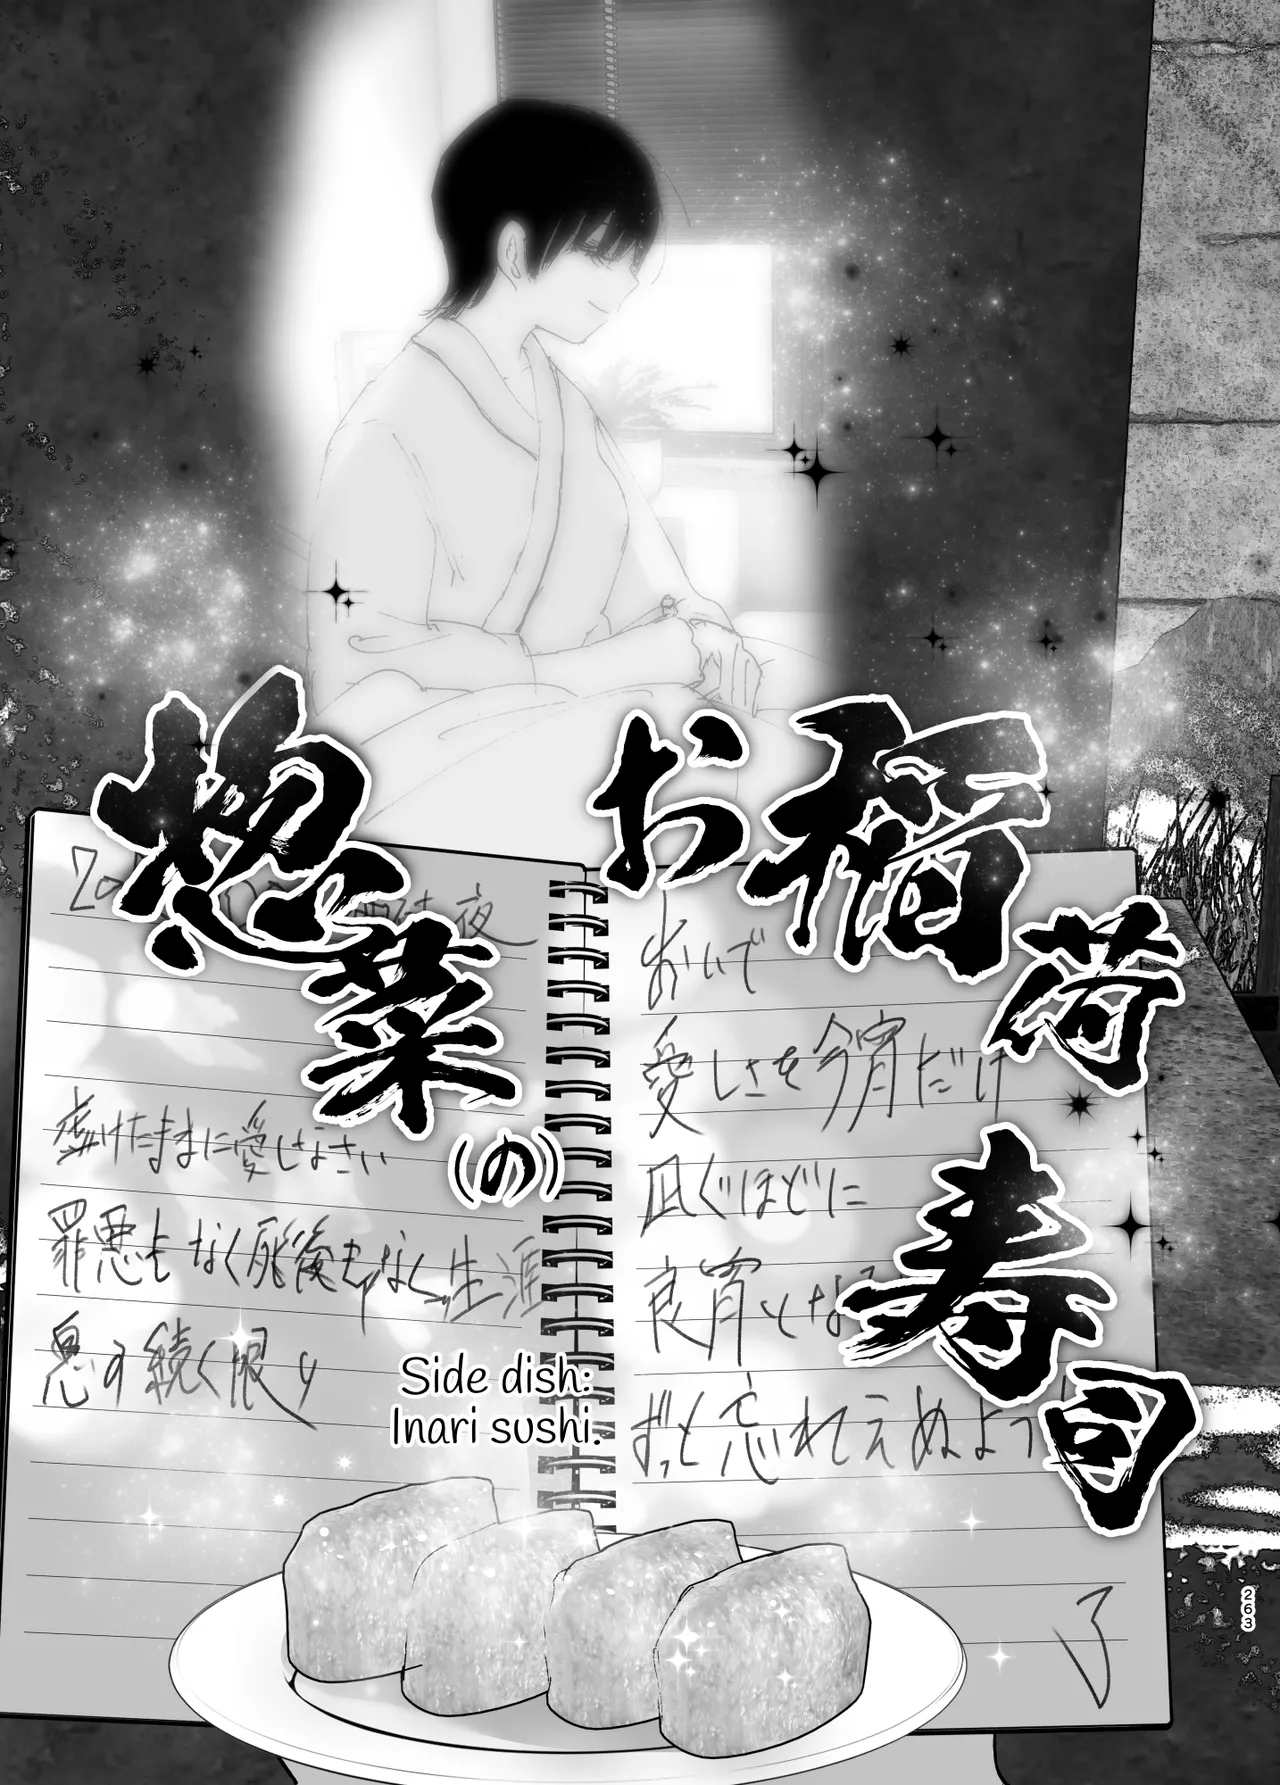 お稲荷寿司
惣菜(の)
夜
虚けたままに愛しなさい
罪悪もなく死後もなく生涯
息の続く限り
おいで
愛しさを今宵だけ
凪ぐほどに
良宵とな
ずっと忘れえぬよう
了
Side dish:
Inari sushi.
263